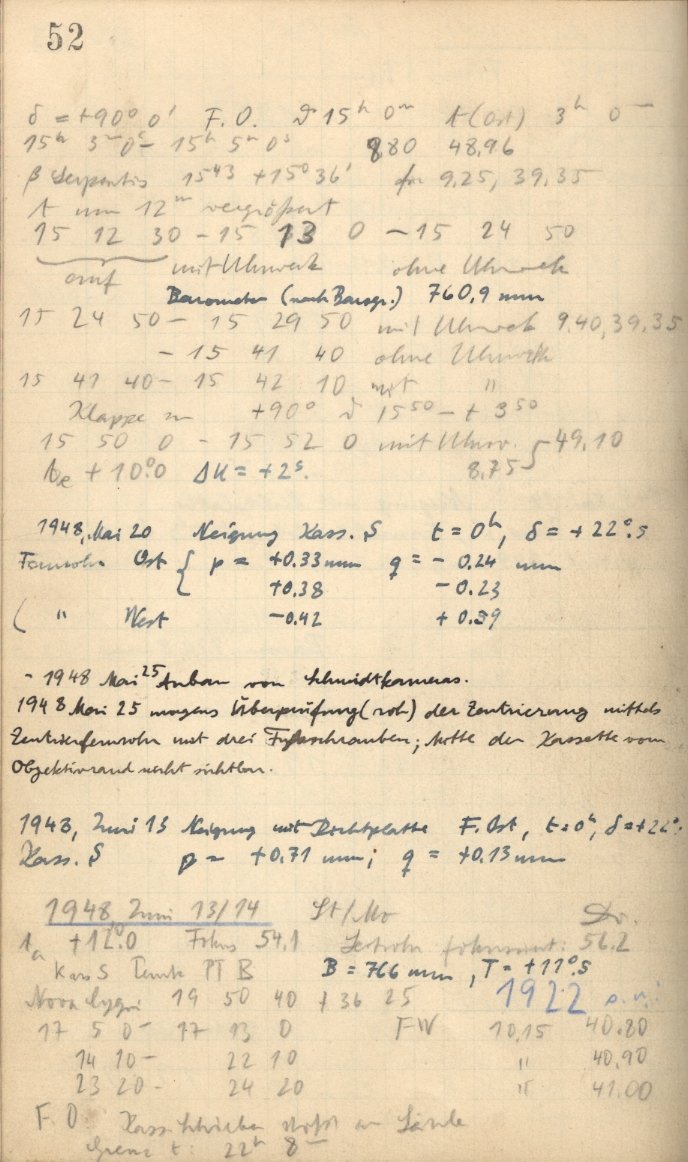 52
δ = +90° 0' F.O. ϑ 15ʰ 0ᵐ t (Ost) 3ʰ 0ᵐ
15ʰ 3ᵐ 0ˢ – 15ʰ 5ᵐ 0ˢ 880 48,96
β Serpentis 15⁴³ +15° 36' 9,25, 39,35
t um 12ᵐ vergrößert
15 12 30 – 15 13 0 – 15 24 50
auf mit Uhrwerk ohne Uhrwerk
Barometer (nach Barogr.) 760,9 mm
15 24 50 – 15 29 50 mit Uhrwerk 9,40, 39,35
– 15 41 40 ohne Uhrwerk
15 41 40 – 15 42 10 mit "
Klappe zu +90° ϑ 15⁵⁰ – t 3⁵⁰
15 50 0 – 15 52 0 mit Uhrw. 49,10
+10°0 ΔU = +2ˢ. 8,75
1948, Mai 20 Neigung Kass. S t = 0ʰ, δ = +22°,5
Fernrohr Ost { p = +0.33 mm q = – 0.24 mm
+0.38 – 0.23
( " West –0.42 + 0.59
– 1948 Mai 25 Anbau von Schmidtkameras.
1948 Mai 25 morgens Überprüfung (roh) der Zentrierung mittels
Zentrierfernrohr mit drei Fußschrauben; Mitte der Kassette vom
Objektivrand nicht sichtbar.
1948, Juni 13 Neigung mit Richtplatte F. Ost, t = 0ʰ, δ = +22°.
Kass. S p = +0.71 mm; q = +0.13 mm
1948, Juni 13/14 St/Mo Dr.
+12°,0 Fokus 54.1 56.2
Kass S Perutz PT B B = 766 mm, T = +11°,5
Nova Cygni 19 50 40 +36 25 1922
17 5 0 – 17 13 0 FW 10,15 40.80
14 10 – 22 10 " 40,90
23 20 – 24 20 " 41.00
F. O. Kass. stößt an Säule
Grenz t: 22ʰ 8ᵐ